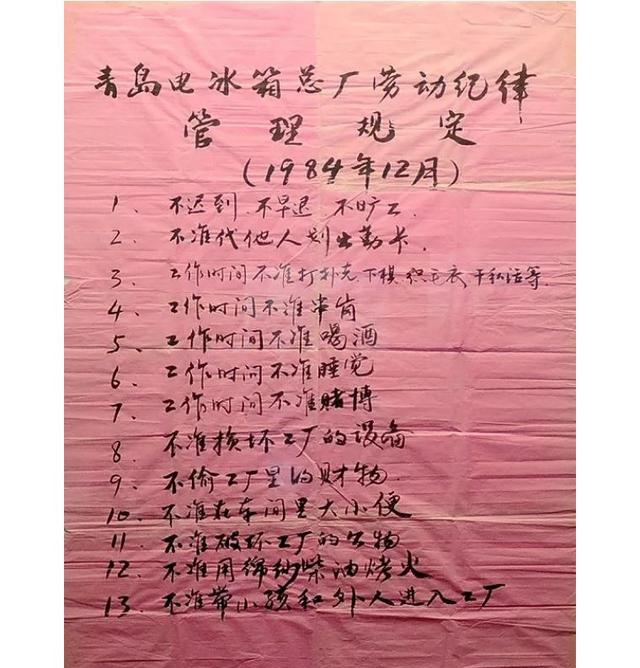 青岛电冰箱总厂劳动纪律
管理规定
(1984年12月)
1、不迟到、不早退、不旷工.
2、不准代他人划出勤卡.
3、工作时间不准打扑克、下棋、织毛衣、干私活等.
4、工作时间不准串岗
5、工作时间不准喝酒
6、工作时间不准睡觉
7、工作时间不准赌博
8、不准损坏工厂的设备
9、不偷工厂里的财物.
10、不准在车间里大小便
11、不准破坏工厂的公物
12、不准用棉纱柴油烤火
13、不准带小孩和外人进入工厂